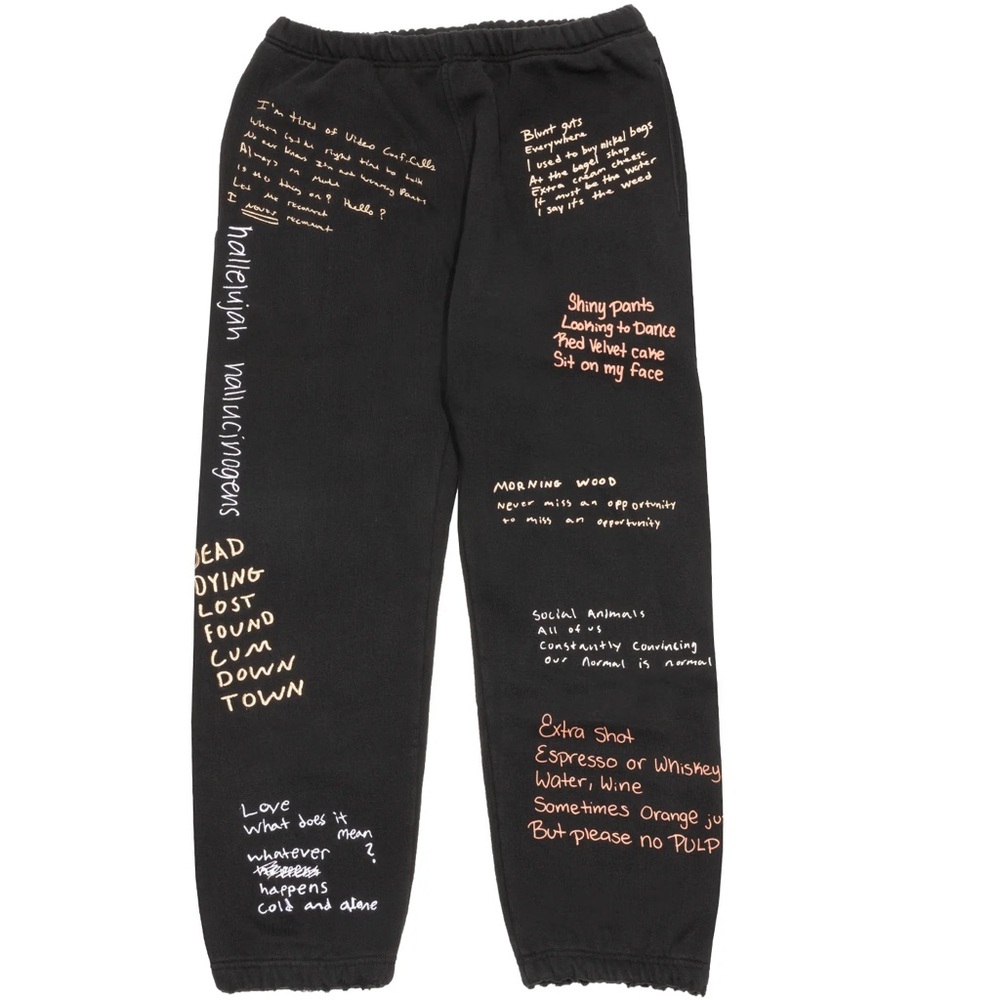 I'm tired of Video Conf. Calls
When is the right time to talk
No one knows I'm not wearing Pants
Always on Mute
Is this thing on? Hello?
Let me reconnect
I never reconnect
hallelujah hallucinogens
DEAD
DYING
LOST
FOUND
CUM
DOWN
TOWN
Love
What does it
mean
whatever ?
happens
cold and alone
Blunt guts
Everywhere
I used to buy nickel bags
At the bagel shop
Extra cream cheese
It must be the water
I say its the weed
Shiny pants
Looking to Dance
Red Velvet cake
Sit on my face
MORNING WOOD
Never miss an opportunity
to miss an opportunity
Social Animals
All of us
Constantly Convincing
our normal is normal
Extra Shot
Espresso or Whiskey
Water, Wine
Sometimes Orange ju
But please no PULP